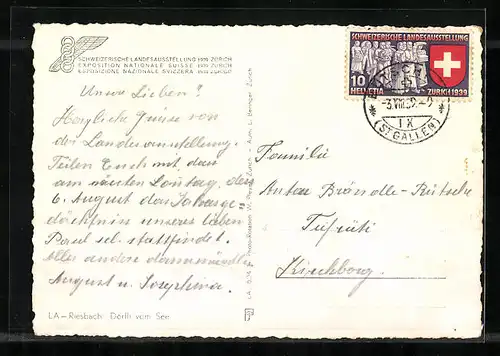 SCHWEIZERISCHE LANDESAUSSTELLUNG 1939 ZÜRICH
EXPOSITION NATIONALE SUISSE 1939 ZURICH
ESPOSIZIONE NAZIONALE SVIZZERA 1939 ZURIGO
Unsre Lieben!
Herzliche Grüsse von
der Landesausstellung.
Teilen Euch mit dass
am nächsten Sonntag, den
6. August das Jahrge-
dächtniss unseres lieben
Paul sel. stattfindet.
Alles andere dann mündlich
August u. Josephina.
LA – Riesbach: Dörfli vom See
SCHWEIZERISCHE LANDESAUSSTELLUNG
10
HELVETIA ZÜRICH 1939
-3.VIII.39.-2
IX
(ST. GALLEN)
Familie
Anton Brändle-Rütsche
Kirchberg.